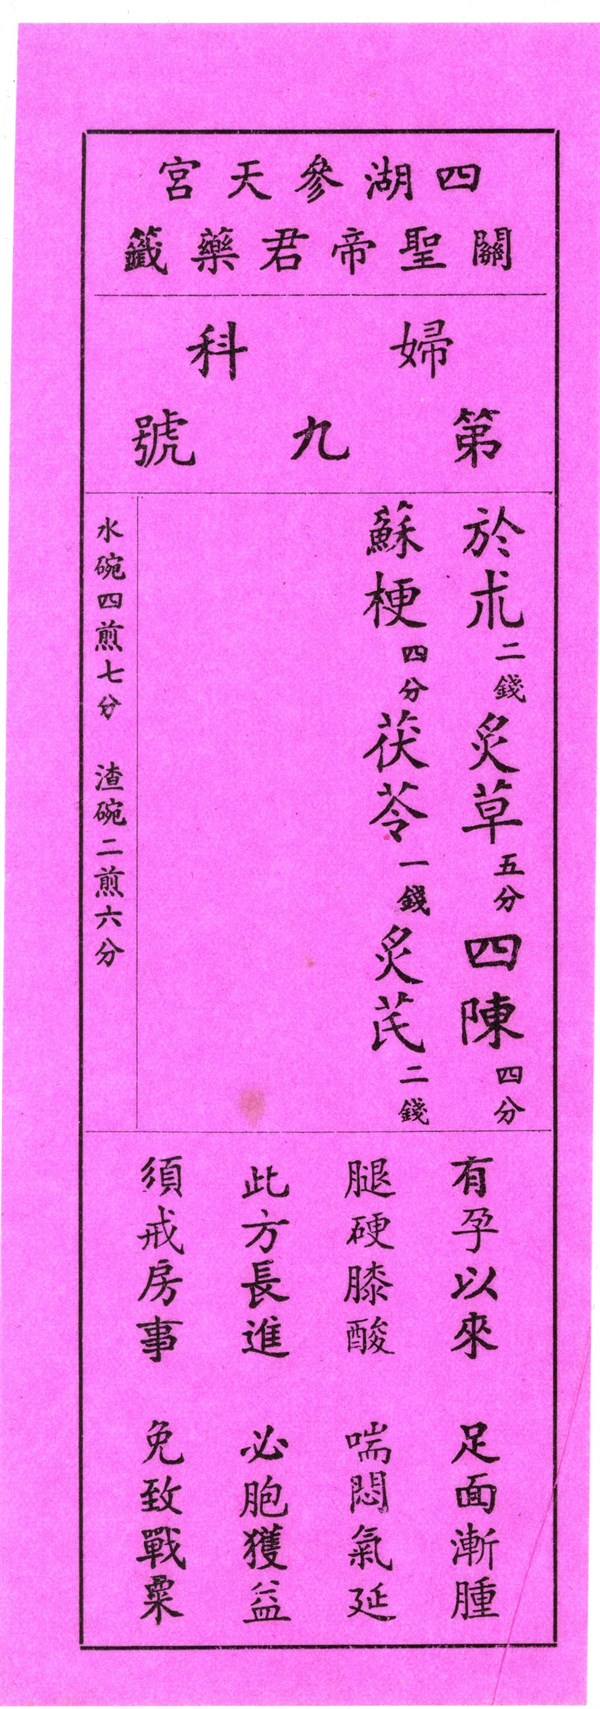 四湖參天宮
關聖帝君藥籤
婦科
第九號
於朮二錢炙草五分四陳四分
蘇梗四分茯苓一錢炙芪二錢
水碗四煎七分 渣碗二煎六分
有孕以來 足面漸腫
腿硬膝酸 喘悶氣延
此方長進 必胞獲益
須戒房事 免致戰粟